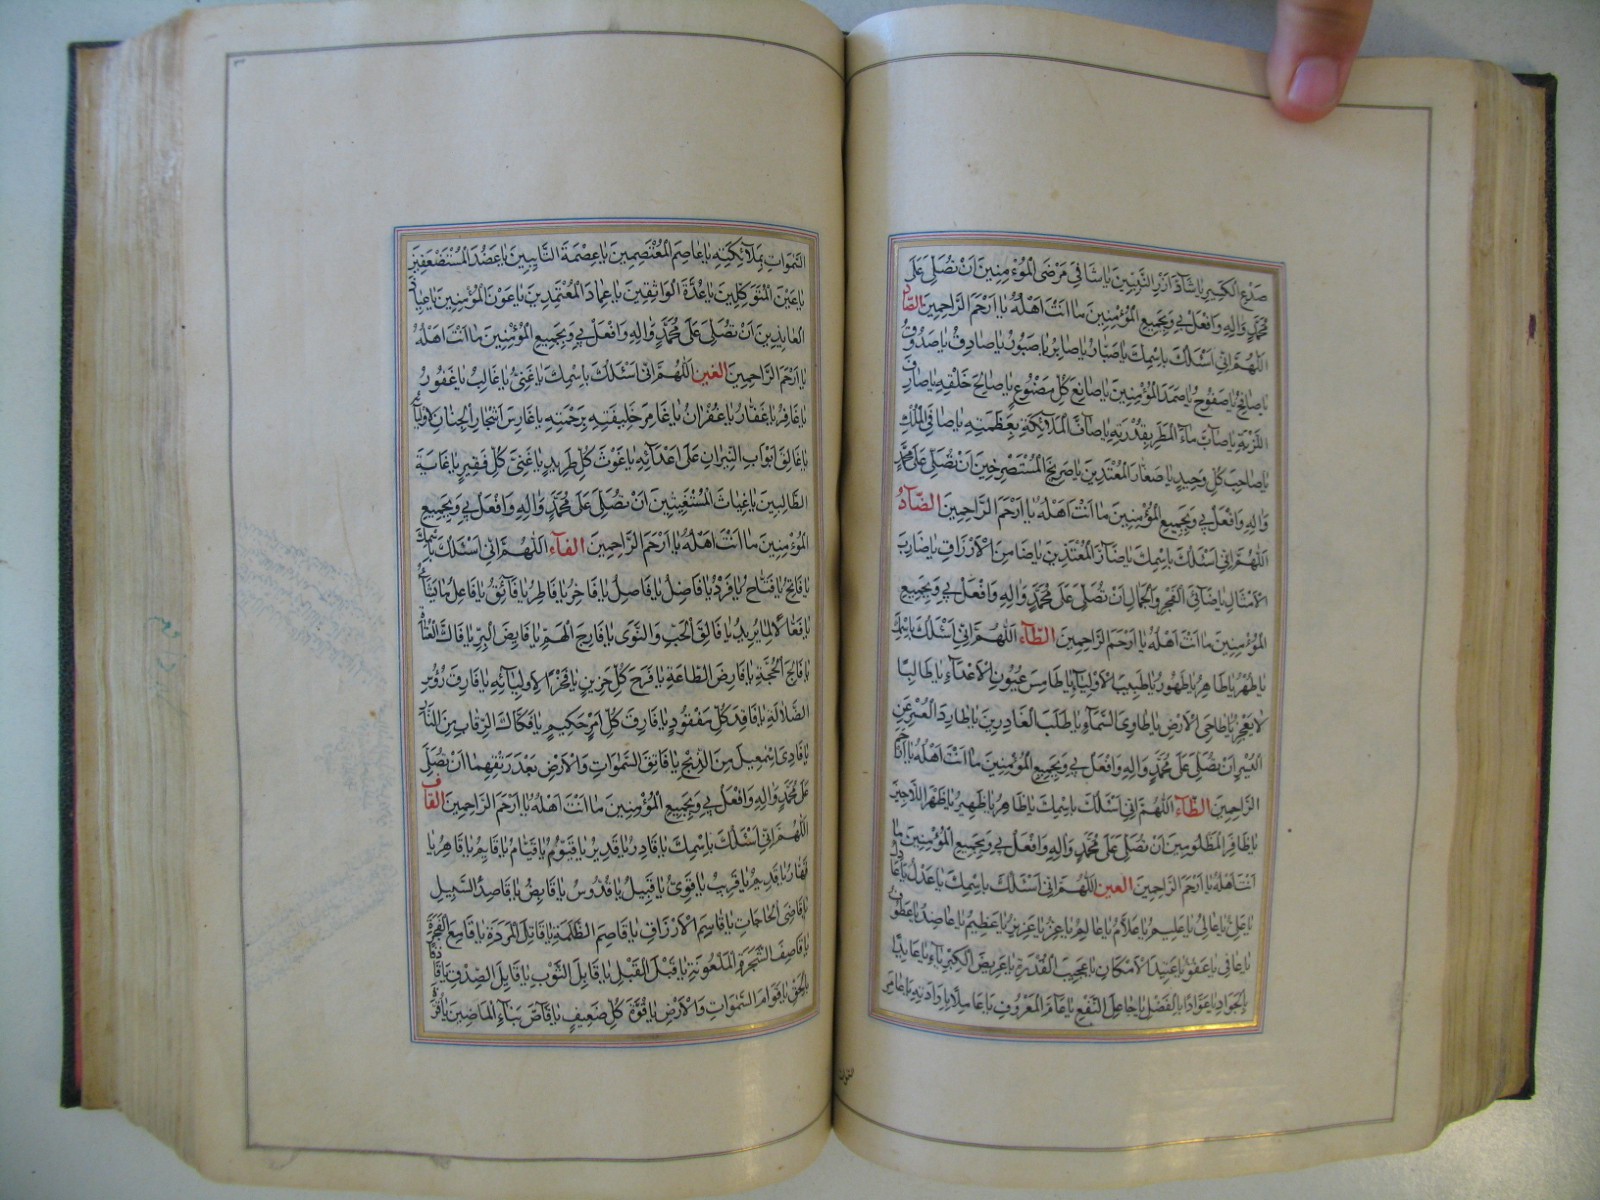 صَدْعِ الْكَسِيرِ يَا شَادَّ أَزْرِ النَّبِيِّينَ يَا شَافِيَ مَرْضَى الْمُؤْمِنِينَ أَنْ تُصَلِّيَ عَلَى
مُحَمَّدٍ وَالِهِ وَافْعَلْ بِي وَبِجَمِيعِ الْمُؤْمِنِينَ مَا أَنْتَ أَهْلُهُ يَا أَرْحَمَ الرَّاحِمِينَ الصَّاد
اللَّهُمَّ إِنِّي أَسْئَلُكَ بِاسْمِكَ يَا صَبَّارُ يَا صَابِرُ يَا صَبُورُ يَا صَادِقُ يَا صَدُوقُ
يَا صَافِحُ يَا صَفُوحُ يَا صَمَدَ الْمُؤْمِنِينَ يَا صَانِعَ كُلِّ مَصْنُوعٍ يَا صَالِحَ خَلْقِهِ يَا صَارِفَ
اللَّزْبَةِ يَا صَابَّ مَاءِ الْمَطَرِ بِقُدْرَتِهِ يَا صَافَّ الْمَلَائِكَةِ بِعَظَمَتِهِ يَا صَافِيَ الْمُلْكِ
يَا صَاحِبَ كُلِّ وَحِيدٍ يَا صَغَارَ الْمُعْتَدِينَ يَا صَرِيخَ الْمُسْتَصْرِخِينَ أَنْ تُصَلِّيَ عَلَى مُحَمَّدٍ
وَالِهِ وَافْعَلْ بِي وَبِجَمِيعِ الْمُؤْمِنِينَ مَا أَنْتَ أَهْلُهُ يَا أَرْحَمَ الرَّاحِمِينَ الضَّادُ
اللَّهُمَّ إِنِّي أَسْئَلُكَ بِاسْمِكَ يَا ضَارَّ الْمُعْتَدِينَ يَا ضَامِنَ الْأَرْزَاقِ يَا ضَارِبَ
الْأَمْثَالِ يَا ضَافِيَ الْفَخْرِ وَالْجَمَالِ أَنْ تُصَلِّيَ عَلَى مُحَمَّدٍ وَالِهِ وَافْعَلْ بِي وَبِجَمِيعِ
الْمُؤْمِنِينَ مَا أَنْتَ أَهْلُهُ يَا أَرْحَمَ الرَّاحِمِينَ الطَّاء اللَّهُمَّ إِنِّي أَسْئَلُكَ بِاسْمِكَ
يَا طُهْرُ يَا طَاهِرُ يَا طَهُورُ يَا طَبِيبَ الْأَوْلِيَاءِ يَا طَامِسَ عُيُونِ الْأَعْدَاءِ يَا طَالِبًا
لَا يَعْجِزُ يَا طَاحِيَ الْأَرْضِ يَا طَاوِيَ السَّمَاءِ يَا طَلَبَ الْغَادِرِينَ يَا طَارِدَ الْعُسْرِ عَنِ
الْيُسْرِ أَنْ تُصَلِّيَ عَلَى مُحَمَّدٍ وَالِهِ وَافْعَلْ بِي وَبِجَمِيعِ الْمُؤْمِنِينَ مَا أَنْتَ أَهْلُهُ يَا أَرْحَمَ
الرَّاحِمِينَ الظَّاء اللَّهُمَّ إِنِّي أَسْئَلُكَ بِاسْمِكَ يَا ظَاهِرُ يَا ظَهِيرُ يَا ظَهْرَ اللَّاجِينَ
يَا ظَافِرَ الْمَظْلُومِينَ أَنْ تُصَلِّيَ عَلَى مُحَمَّدٍ وَالِهِ وَافْعَلْ بِي وَبِجَمِيعِ الْمُؤْمِنِينَ مَا
أَنْتَ أَهْلُهُ يَا أَرْحَمَ الرَّاحِمِينَ العين اللَّهُمَّ إِنِّي أَسْئَلُكَ بِاسْمِكَ يَا عَدْلُ يَا عَادِلُ
يَا عَلِيُّ يَا عَالِي يَا عَلِيمُ يَا عَلَّامُ يَا عَالِمُ يَا عِزُّ يَا عَزِيزُ يَا عَظِيمُ يَا عَاضِدُ يَا عَطُوفُ
يَا عَافِي يَا عَفُوُّ يَا عَتِيدَ الْإِمْكَانِ يَا عَجِيبَ الْقُدْرَةِ يَا عَرِيضَ الْكِبْرِيَاءِ يَا عَائِدًا
بِالْجَوَادِ يَا عَوَّادًا بِالْفَضْلِ يَا عَاجِلَ النَّفْعِ يَا عَامَّ الْمَعْرُوفِ يَا عَامِلًا بِإِرَادَتِهِ يَا عَامِرَ
السموات
السَّمَوَاتِ بِمَلَائِكَتِهِ يَا عَاصِمَ الْمُعْتَصِمِينَ يَا عِصْمَةَ التَّائِبِينَ يَا عَضُدَ الْمُسْتَضْعَفِينَ
يَا عَيْنَ الْمُتَوَكِّلِينَ يَا عُدَّةَ الْوَاثِقِينَ يَا عِمَادَ الْمُعْتَمِدِينَ يَا عَوْنَ الْمُؤْمِنِينَ يَا عِيَاذَ
الْعَائِذِينَ أَنْ تُصَلِّيَ عَلَى مُحَمَّدٍ وَالِهِ وَافْعَلْ بِي وَبِجَمِيعِ الْمُؤْمِنِينَ مَا أَنْتَ أَهْلُهُ
يَا أَرْحَمَ الرَّاحِمِينَ الغين اللَّهُمَّ إِنِّي أَسْئَلُكَ بِاسْمِكَ يَا غَنِيُّ يَا غَالِبُ يَا غَفُورُ
يَا غَافِرُ يَا غَفَّارُ يَا غُفْرَانُ يَا غَامِرَ خَلِيقَتِهِ بِرَحْمَتِهِ يَا غَارِسَ أَشْجَارِ الْجِنَانِ لِأَوْلِيَائِهِ
يَا غَالِقَ أَبْوَابِ النِّيرَانِ عَلَى أَعْدَائِهِ يَا غَوْثَ كُلِّ طَرِيدٍ يَا غِنَى كُلِّ فَقِيرٍ يَا غَايَةَ
الطَّالِبِينَ يَا غِيَاثَ الْمُسْتَغِيثِينَ أَنْ تُصَلِّيَ عَلَى مُحَمَّدٍ وَالِهِ وَافْعَلْ بِي وَبِجَمِيعِ
الْمُؤْمِنِينَ مَا أَنْتَ أَهْلُهُ يَا أَرْحَمَ الرَّاحِمِينَ الفاء اللَّهُمَّ إِنِّي أَسْئَلُكَ بِاسْمِكَ
يَا فَاتِحُ يَا فَتَّاحُ يَا فَرْدُ يَا فَاضِلُ يَا فَاصِلُ يَا فَاخِرُ يَا فَاطِرُ يَا فَائِقُ يَا فَاعِلَ مَا يَشَاءُ
يَا فَعَّالًا لِمَا يُرِيدُ يَا فَالِقَ الْحَبِّ وَالنَّوَى يَا فَارِجَ الْهَمِّ يَا فَائِضَ الْبِرِّ يَا فَاكَّ الْعُنَاةِ
يَا فَالِجَ الْحُجَّةِ يَا فَارِضَ الطَّاعَةِ يَا فَرَجَ كُلِّ حَزِينٍ يَا فَخْرًا لِأَوْلِيَائِهِ يَا فَارِقَ رُؤُسِ
الضَّلَالَةِ يَا فَاقِدَ كُلِّ مَفْقُودٍ يَا فَارِقَ كُلِّ أَمْرٍ حَكِيمٍ يَا فَكَّاكَ الرِّقَابِ مِنَ النَّارِ
يَا فَادِيَ إِسْمَعِيلَ مِنَ الذَّبْحِ يَا فَاتِقَ السَّمَوَاتِ وَالْأَرْضِ بَعْدَ رَتْقِهِمَا أَنْ تُصَلِّيَ
عَلَى مُحَمَّدٍ وَالِهِ وَافْعَلْ بِي وَبِجَمِيعِ الْمُؤْمِنِينَ مَا أَنْتَ أَهْلُهُ يَا أَرْحَمَ الرَّاحِمِينَ القاف
اللَّهُمَّ إِنِّي أَسْئَلُكَ بِاسْمِكَ يَا قَادِرُ يَا قَدِيرُ يَا قَيُّومُ يَا قَيَّامُ يَا قَائِمُ يَا قَاهِرُ يَا
قَهَّارُ يَا قَدِيمُ يَا قَرِيبُ يَا قَوِيُّ يَا قَبِيلُ يَا قُدُّوسُ يَا قَابِضُ يَا قَاصِدَ السَّبِيلِ
يَا قَاضِيَ الْحَاجَاتِ يَا قَاسِمَ الْأَرْزَاقِ يَا قَاصِمَ الظَّلَمَةِ يَا قَاتِلَ الْمَرَدَةِ يَا قَامِعَ الْفَجَرَةِ
يَا قَاصِفَ الشَّجَرَةِ الْمَلْعُونَةِ يَا قَبْلَ الْقَبْلِ يَا قَابِلَ التَّوْبِ يَا قَابِلَ الصِّدْقِ يَا قَاذِفًا
بِالْحَقِّ يَا قِوَامَ السَّمَوَاتِ وَالْأَرْضِ يَا قُوَّةَ كُلِّ ضَعِيفٍ يَا قَاصَّ نَبَاءِ الْمَاضِينَ